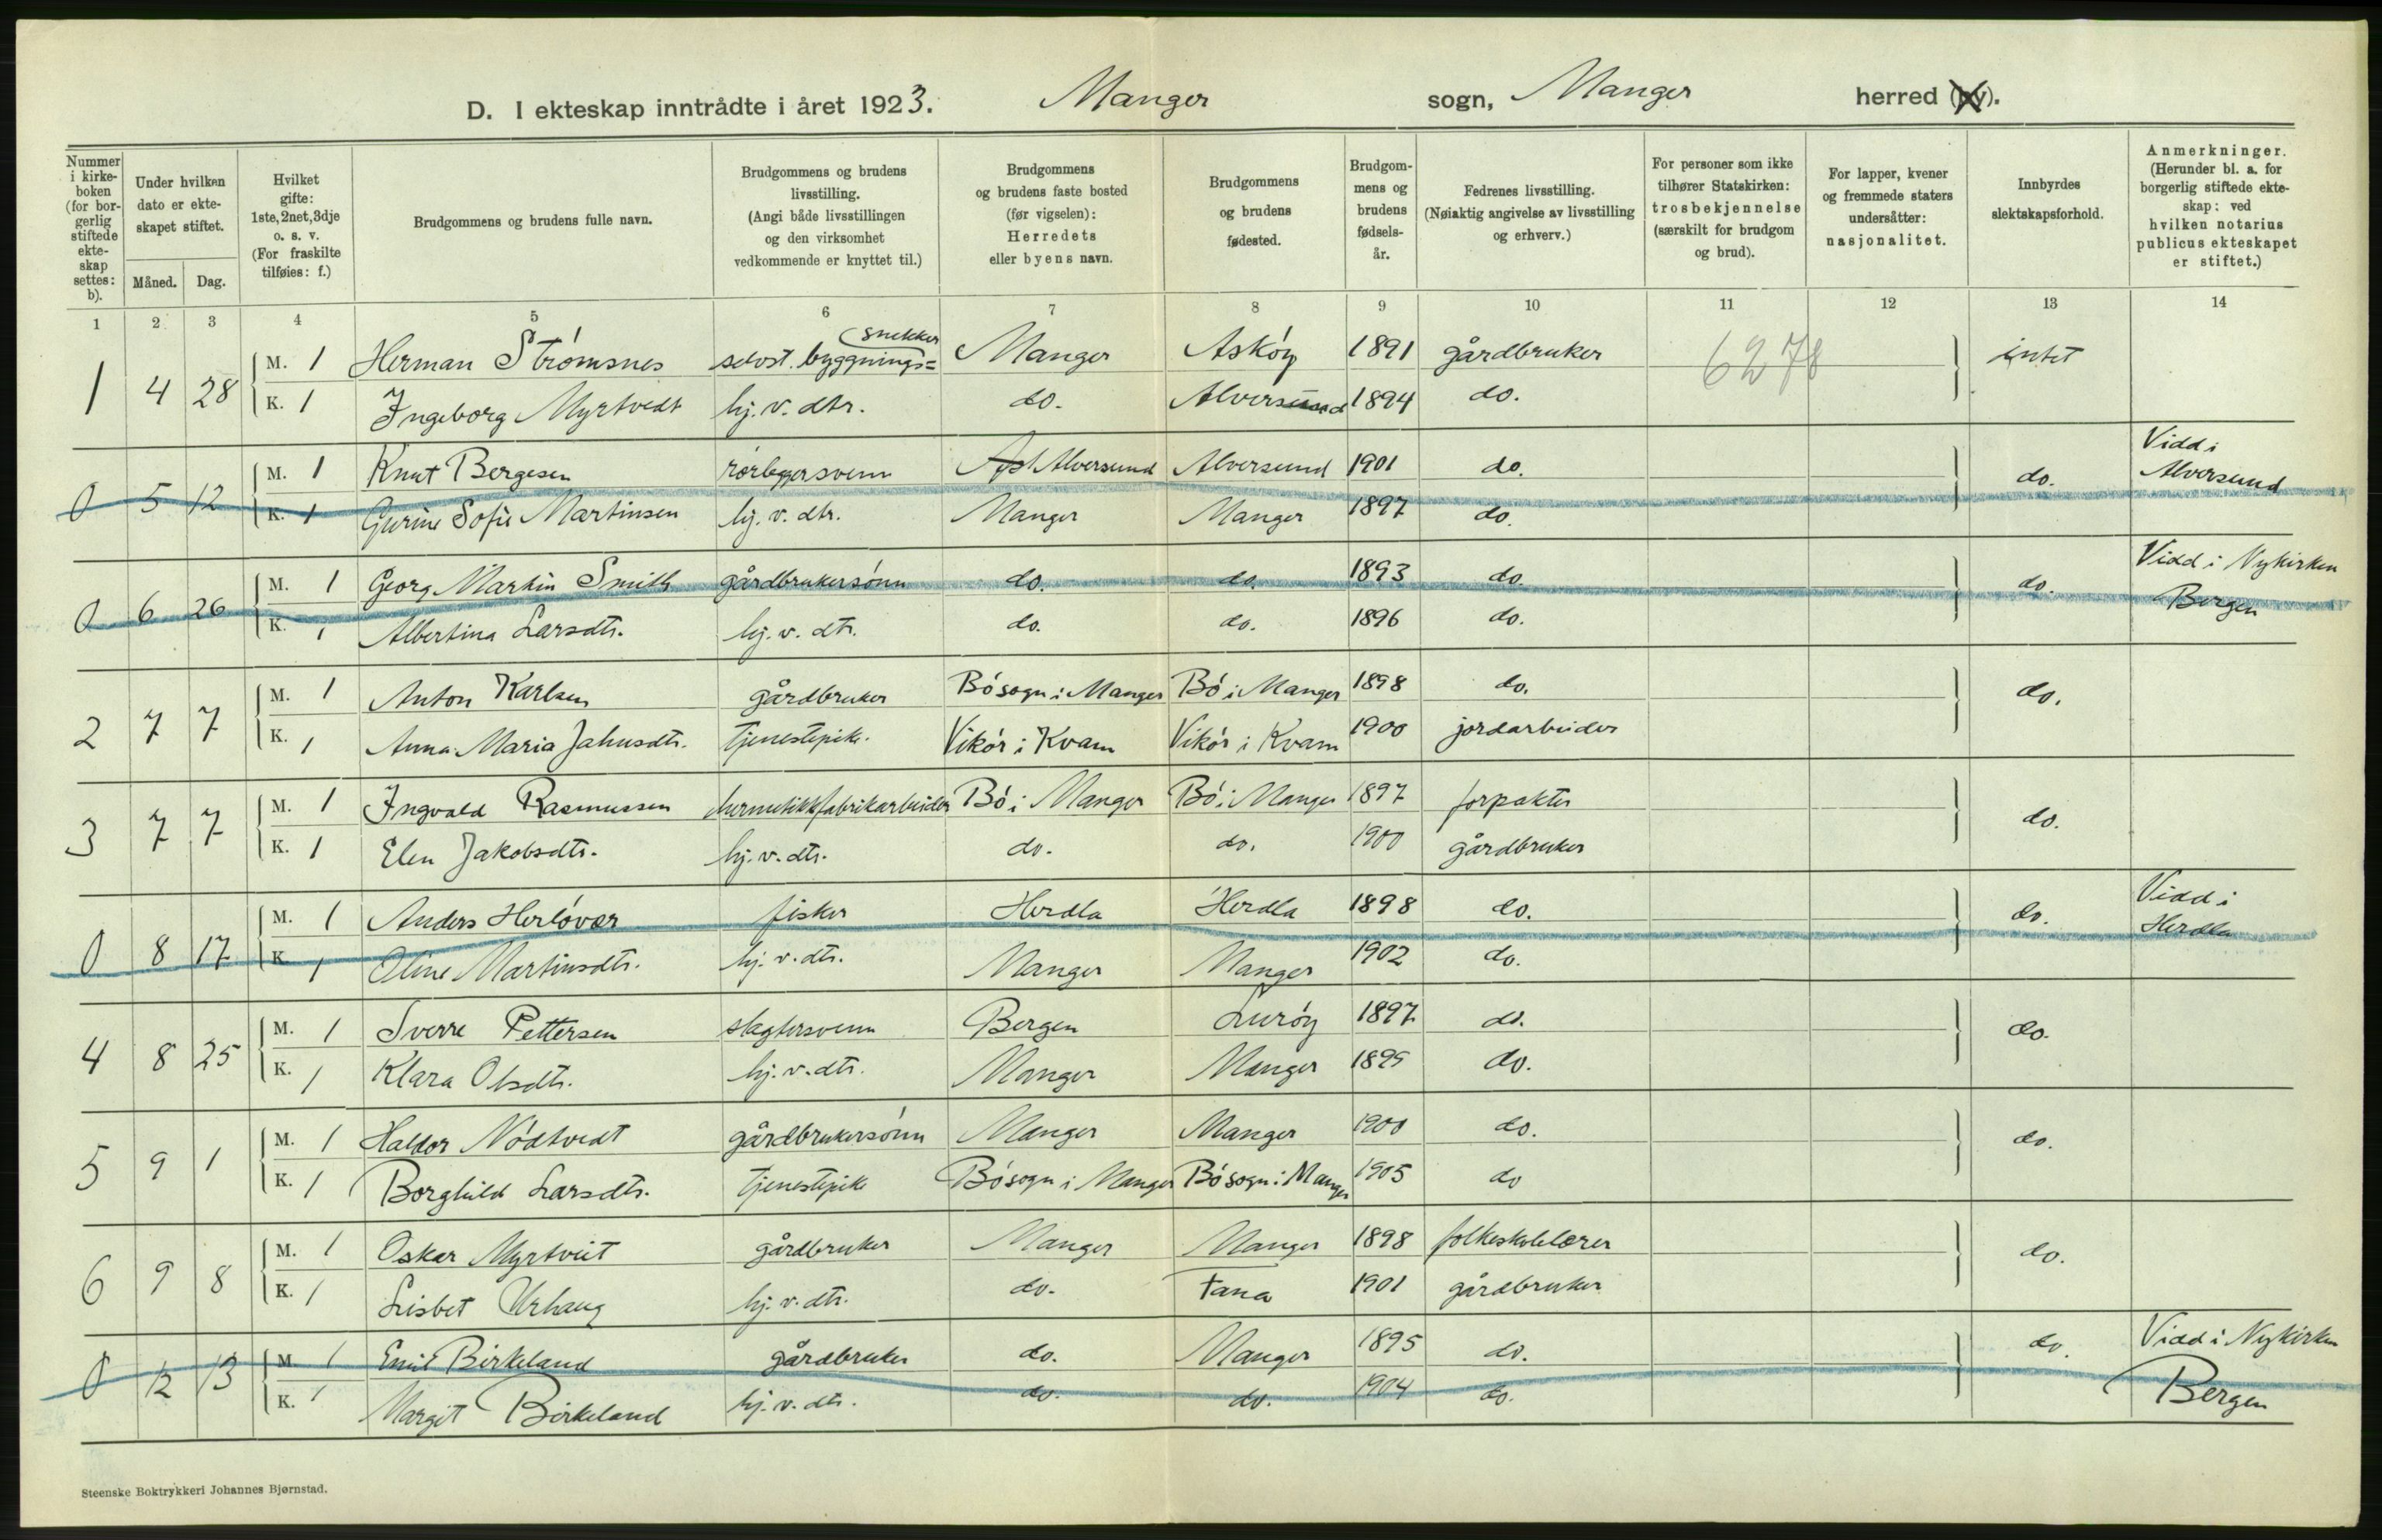 D. I ekteskap inntrådte i året 1923. Manger sogn, Manger herred (by).
Nummer i kirkeboken (for borgerlig stiftede ekteskap settes: b).
Under hvilken dato er ekteskapet stiftet.
Måned. Dag.
Hvilket gifte: 1ste, 2net, 3dje o. s. v. (For fraskilte tilføies: f.)
Brudgommens og brudens fulle navn.
Brudgommens og brudens livsstilling. (Angi både livsstillingen og den virksomhet vedkommende er knyttet til.)
Brudgommens og brudens faste bosted (før vigselen): Herredets eller byens navn.
Brudgommens og brudens fødested.
Brudgommens og brudens fødselsår.
Fedrenes livsstilling. (Nøiaktig angivelse av livsstilling og erhverv.)
For personer som ikke tilhører Statskirken: trosbekjennelse (særskilt for brudgom og brud).
For lapper, kvener og fremmede staters undersåtter: nasjonalitet.
Innbyrdes slektskapsforhold.
Anmerkninger. (Herunder bl. a. for borgerlig stiftede ekteskap: ved hvilken notarius publicus ekteskapet er stiftet.)
1 2 3 4 5 6 7 8 9 10 11 12 13 14
1 4 28 M. 1 Herman Strømsnes selvst. byggnings= snekker Manger Askóy 1891 gårdbruker 6278 intet
K. 1 Ingeborg Myrtvedt hj. v. dtr. do. Alversund 1894 do.
0 5 12 M. 1 Knut Bergesen rørleggersvenn Alversund Alversund 1901 do. do. Vidd i Alversund
K. 1 Gurine Sofie Martinsen hj. v. dtr. Manger Manger 1897 do.
0 6 26 M. 1 Georg Martin Smith gårdbrukersónn do. do. 1893 do. do. Vidd i Nykirken Bergen
K. 1 Albertina Larsdtr. hj. v. dtr. do. do. 1896 do.
2 7 7 M. 1 Anton Karlsen gårdbruker Bó sogn i Manger Bó i Manger 1898 do. do.
K. 1 Anna Maria Jahnsdtr. tjenestepike. Vikór i Kvam Vikór i Kvam 1900 jordarbeider
3 7 7 M. 1 Ingvald Rasmussen hermetikkfabrikarbeider Bó i Manger Bó i Manger 1897 forpakter do.
K. 1 Elen Jakobsdtr. hj. v. dtr. do. do. 1900 gårdbruker
0 8 17 M. 1 Anders Herlóvær fisker Herdla Herdla 1898 do. do. Vidd i Herdla
K. 1 Oline Martinsdtr. hj. v. dtr. Manger Manger 1902 do.
4 8 25 M. 1 Sverre Pettersen slagtersvenn Bergen Luróy 1897 do. do.
K. 1 Klara Olsdtr. hj. v. dtr. Manger Manger 1899 do.
5 9 1 M. 1 Haldor Nódtvedt gårdbrukersónn Manger Manger 1900 do. do.
K. 1 Borghild Larsdtr. tjenestepike Bó sogn i Manger Bó sogn i Manger 1905 do
6 9 8 M. 1 Oskar Myrtveit gårdbruker Manger Manger 1898 folkeskolelærer do.
K. 1 Lisbet Urhaug hj. v. dtr. do. Fana 1901 gårdbruker
0 12 13 M. 1 Emil Birkeland gårdbruker do. Manger 1895 do. do. Vidd i Nykirken Bergen
K. 1 Margit Birkeland hj. v. dtr. do. do. 1904 do.
Steenske Boktrykkeri Johannes Bjørnstad.